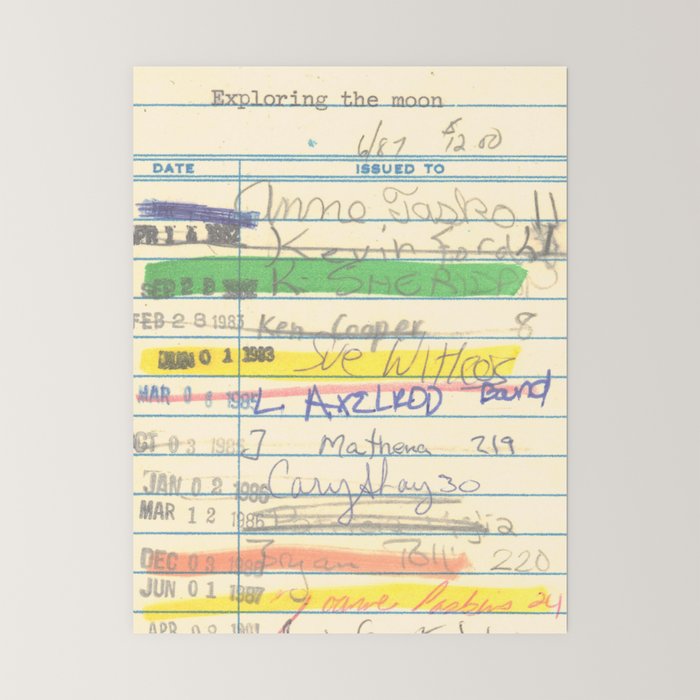 Exploring the moon
6/87 $12.00
DATE ISSUED TO
Anne Tasko 11
APR 14 1982 Kevin Ford
SEP 28 K. SHERIDAN
FEB 28 1983 Ken Cooper 8
JUN 01 1983 Sue Witcox
MAR 06 1985 L AXELROD Band
OCT 03 1985 J Mathena 219
JAN 02 1986 Cary Shay 30
MAR 12 1986
DEC 03 1986 Bryan 220
JUN 01 1987 24
APR 08